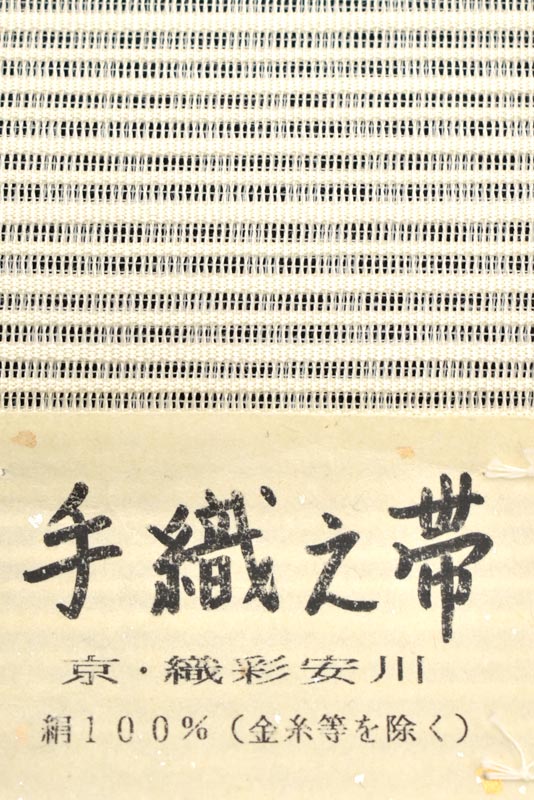 手織之帯
京・織彩安川
絹100%(金糸等を除く)